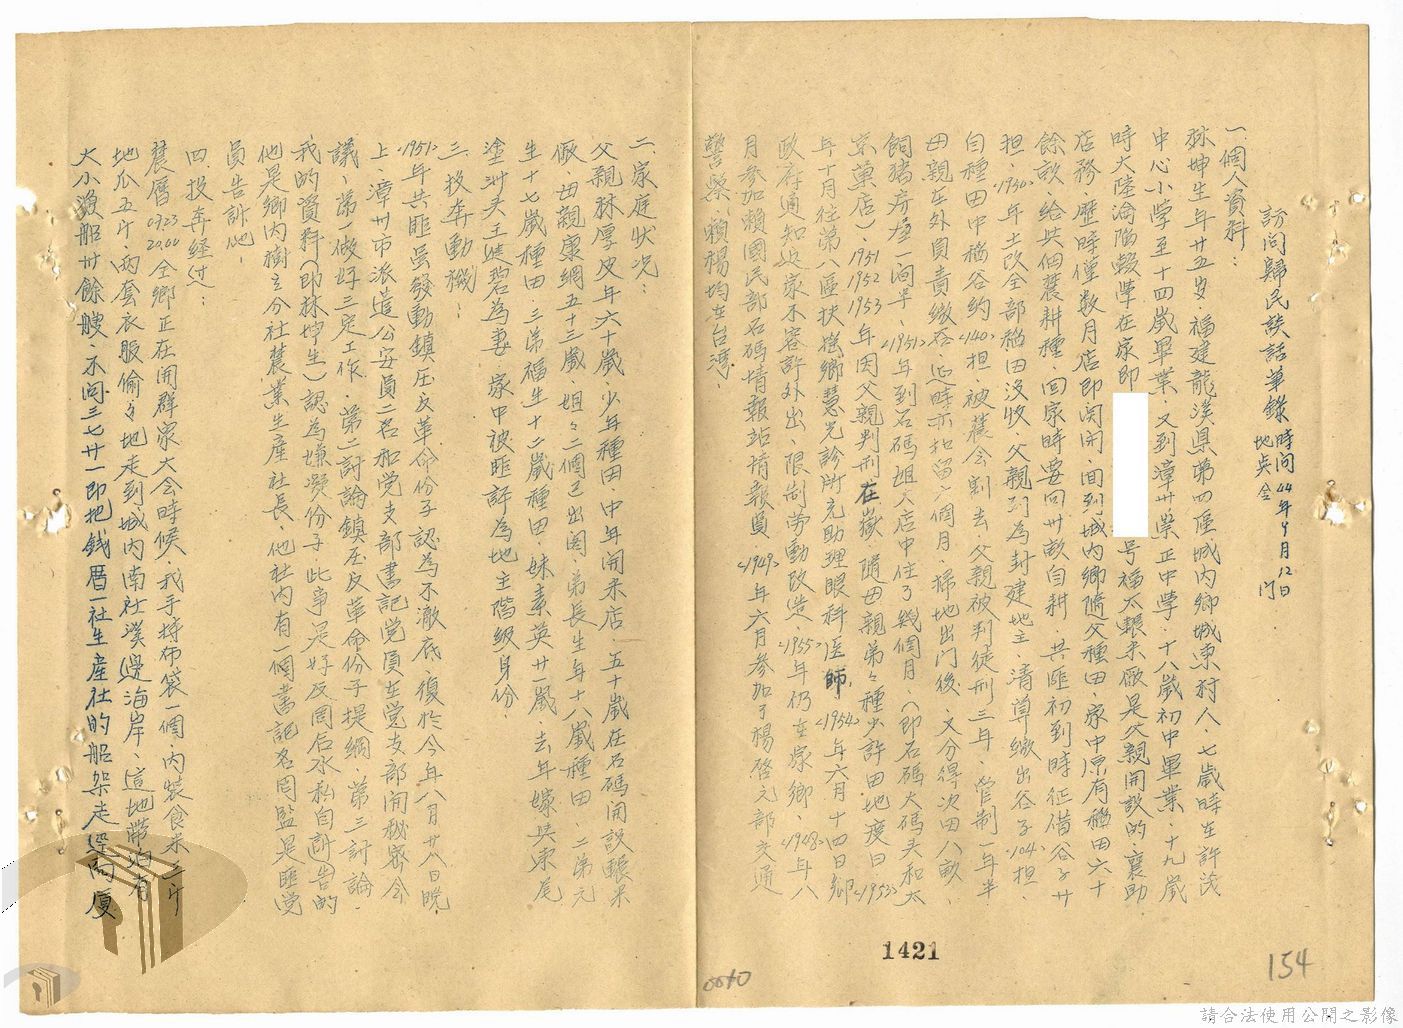 訪問歸民談話筆錄 時间 44年9月12日
地点 金 门
一.個人資料：
林坤生年廿五岁.福建龍溪県第四區城内鄉城東村人.七歲時在許茂
中心小學至十四歲畢業.又到漳州崇正中學.十八歲初中畢業.十九歲
時大陸淪陷輟學在家即 号福太輾米廠是父親開設的.襄助
店務歷時僅数月店即関閉.回到城内鄉隨父種田.家中原有稻田六十
餘畝.给共佃農耕種.回家時要回卅畝自耕.共匪初到時征借谷子廿
担.<1950>年土改全部稻田没收.父親列為封建地主.清尊繳出谷子<104>担.
自種田中稻谷約<140>担.被農会割去.父親被判徒刑三年.管制一年半
母親在外負責繳谷.延時亦扣留一個月.掃地出門後.又分得次田八畝.
飼猪房屋一间半.<1951>年到石碼姐夫店中住了幾個月.(即石碼大碼头和太
京菓店)1951 1952 1953年因父親判刑在嶽.隨母親弟々種少許田地度日.<1953>
年十月往第八區扶搖鄉慧光診所充助理眼科医師.<1954>年六月十四日鄉
政府通知返家不容許外出.限制劳動改造<1955>年仍在家鄉.<1948>年八
月参加賴國民部石碼情報站情報員<1949>年六月参加了楊啓元部交通
警察.賴楊均在台灣.
二.家庭狀况：
父親林厚皮年六十歲.少年種田中年開米店.五十歲在石碼開設輾米
廠.母親康綢五十三歲.姐々二個已出閣.弟長生年十八歲種田.二弟元
生十七歲種田.三弟福生十二歲種田.妹素英廿一歲.去年嫁吳宋尾
塗洲头王雄碧為妻.家中被匪評為地主階級身份.
三.投奔動機：
<1951>年共匪吳發動鎮压反革命份子認為不澈底.復於今年八月廿八日晚
上.漳州市派遣公安員二名和党支部書記党員在党支部開秘密会
議.第一做好三定工作.第二討論鎮压反革命份子提綱.第三討論.
我的資料(即林坤生)認為嫌瓚份子此事是好友周后水私自訃告的
他是鄉内樹立分社農業生產社長.他社内有一個書記名周監是匪党
員告訴他.
四.投奔經过：
農曆07.23 20.00全鄉正在開群衆大会時候.我手持布袋一個.内裝食米三斤
地瓜五斤.两套衣服偷々地走到城内南社溪邊海岸.這地帶泊有
大小漁船卅餘艘.不问三七廿一即把錢厝一社生產社的船架走逕向廈
1421
0010
154
請合法使用公開之影像